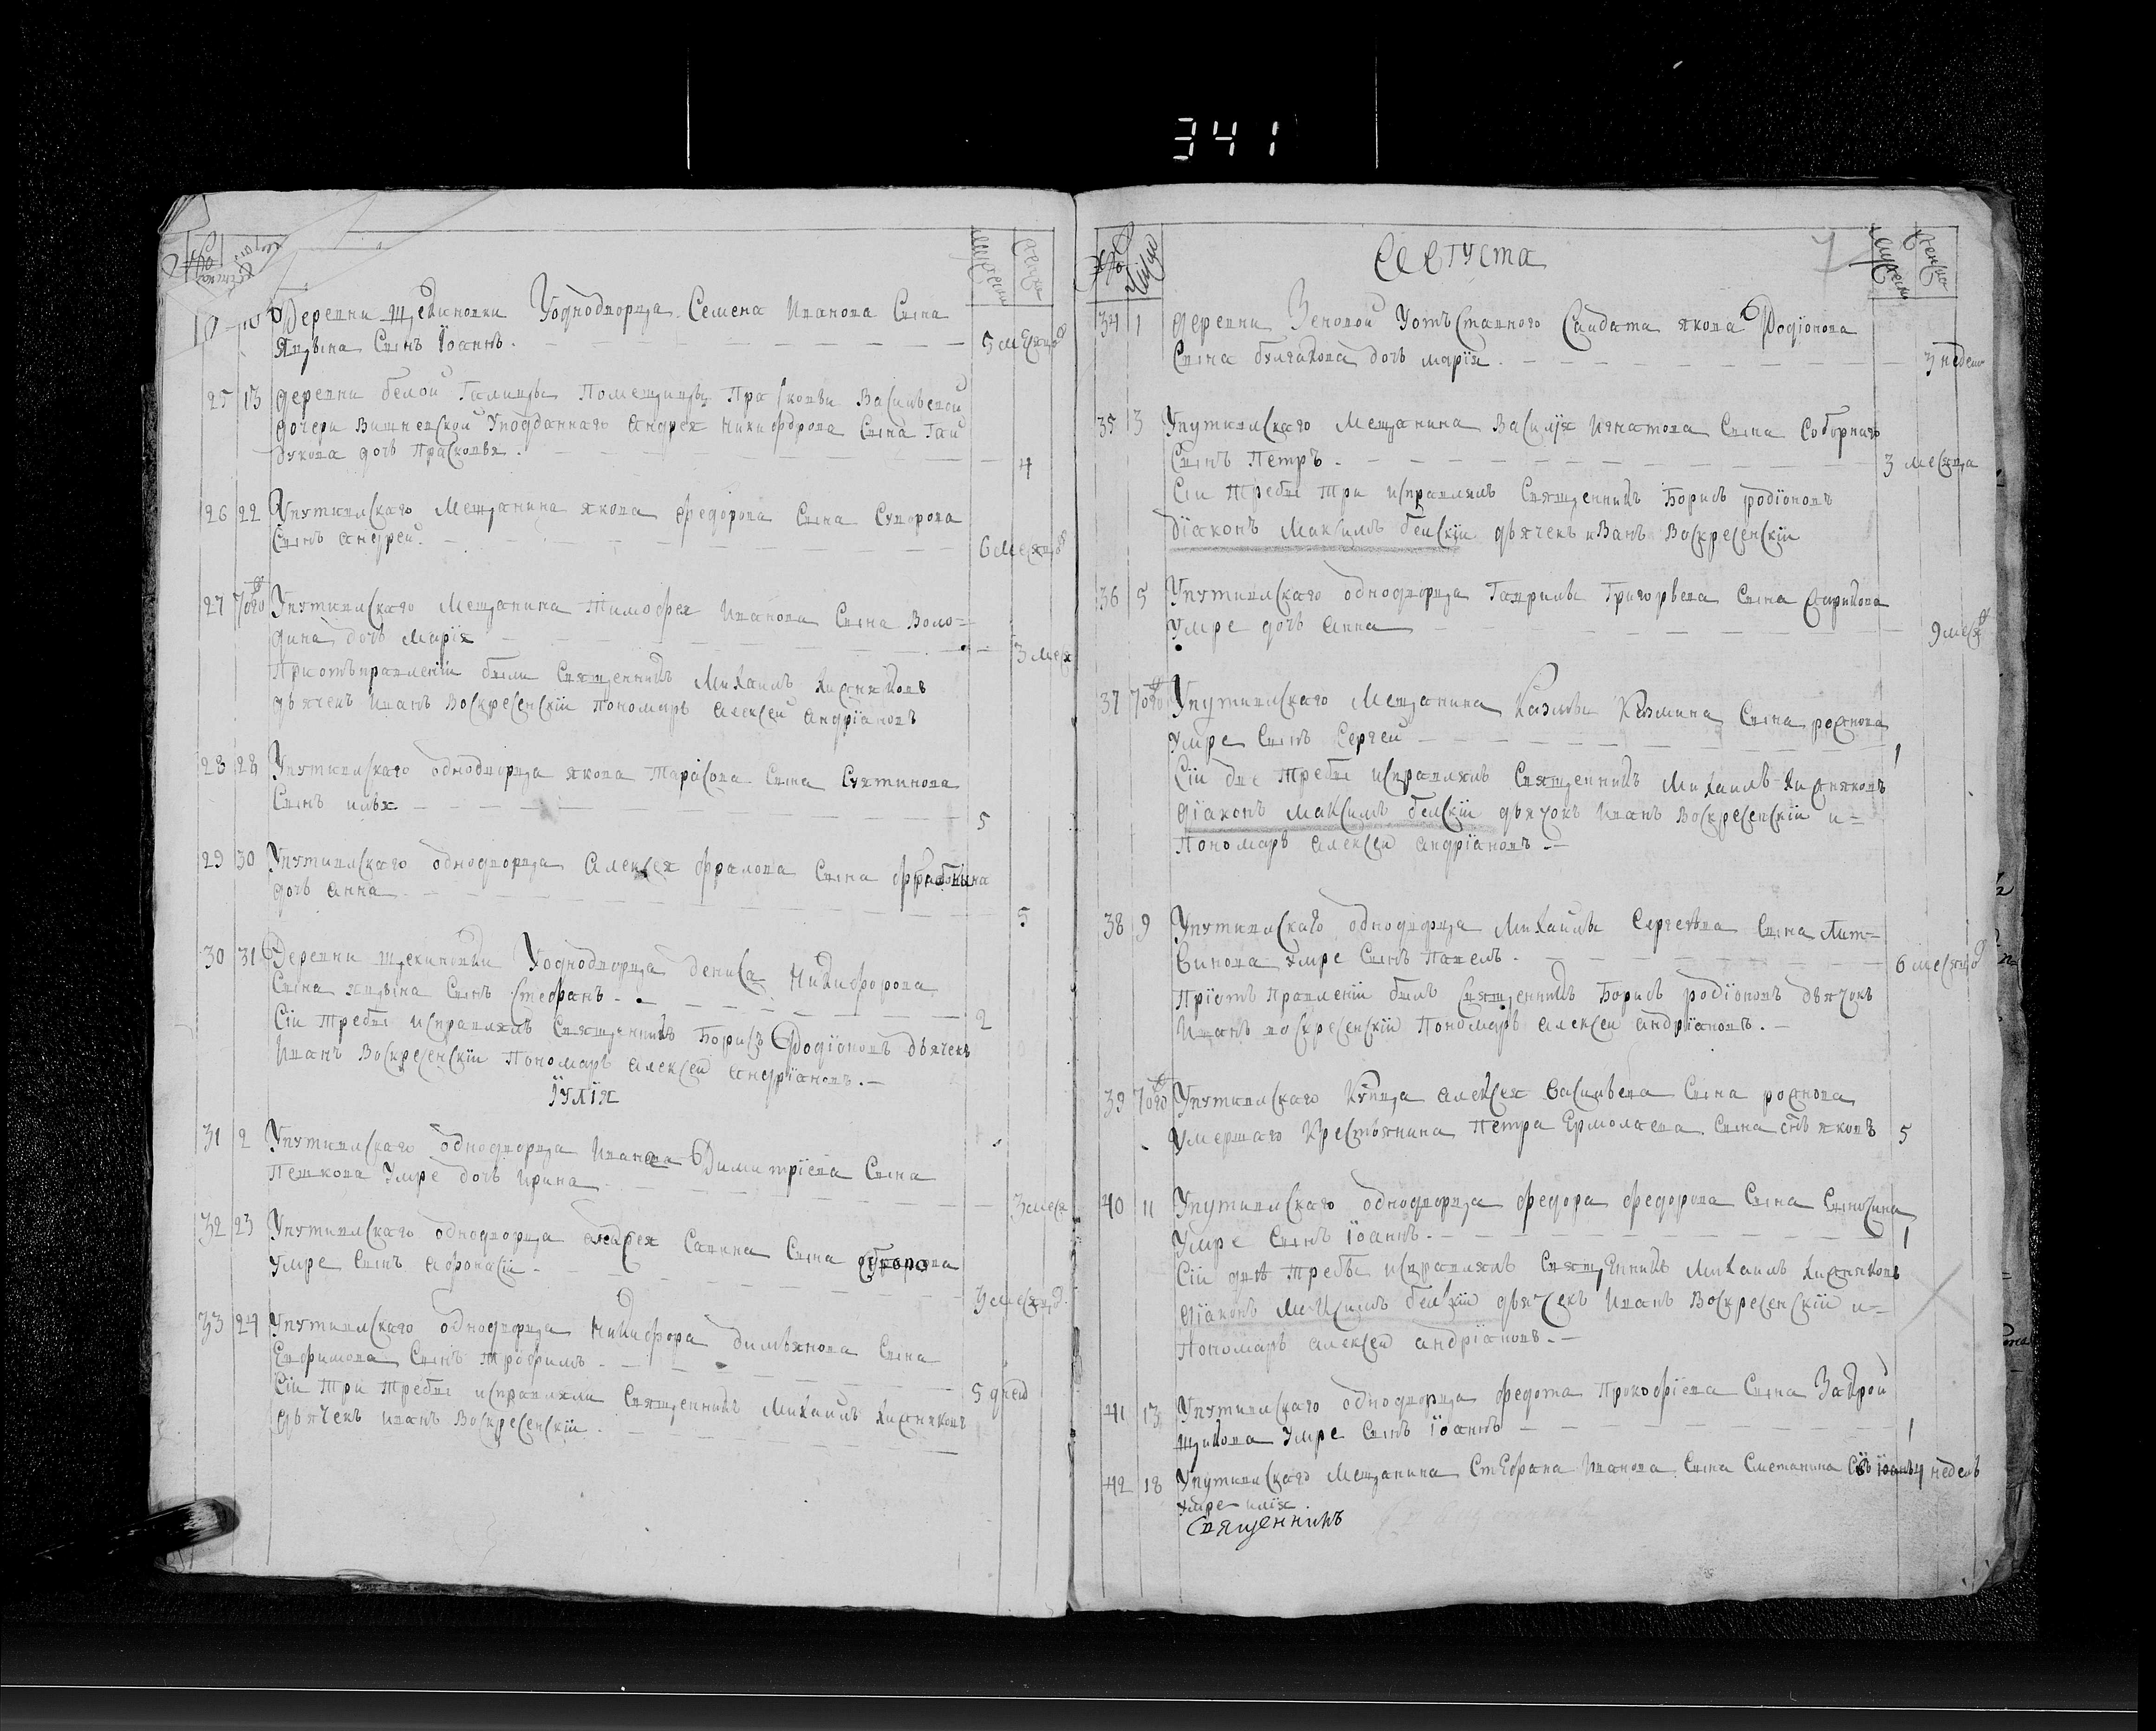 341
Деревни Щекиновки Уоднодворца Семена Иванова Сына
Сынъ Іоаннъ. 5 месяцовъ
25 13 Деревни белой Галицы Помещицы Прасковьи Васильевой
дочери Вишневской Уподданнаго Андрея Никифорова Сына Гай
дукова дочь Прасковья. 4
26 22 Упутивлскаго Мещанина якова федорова Сына Суворова
Сынъ андрей. 6 месяцовъ
27 того Упутивлскаго Мещанина Тимофея Иванова Сына Воло=
дина дочь Марія 3 меся
При отъправленіи были Священникъ Михаилъ
дьячекъ Иванъ Воскресенскіи пономарь алексей андріановъ
28 28 Упутивлскаго однодворца якова Тарасова Сына
Сынъ илья 5
29 30 Упутивлскаго однодворца Алексея фролова Сына
дочь анна 5
30 31 Деревни щекиновки Уоднодворца дениса Никифорова
Сына Сынъ Стефанъ. 2
Сіи Требы исправлялъ Священникъ Борисъ Родіоновъ дьячекъ
Иванъ Воскресенскіи Пономарь алексей андріановъ.
Іулія
31 2 Упутивлскаго однодворца Ивана Димитріева Сына
Пешкова Умре дочь Ирина 3 меся
32 23 Упутивлскаго однодворца Савина Сына
умре Сынъ афонасіи 9 месяцо.
33 24 Упутивлскаго однодворца Никифора димьянова Сына
Ефимова Сынъ Трофимъ 5 дней
Сіи Три Требы исправляли Священникъ Михаилъ
дьячекъ иванъ Воскресенскіи.
Августа
34 1 деревни Зеновой Уотъставного Салдата якова Родіонова
Сына булгакова дочь марія. 3 недели
35 3 Упутивлскаго Мещанина Василія Игнатова Сына Соборнаго
Сынъ Петръ. 3 месяца
Сіи Требы Три исправлялъ Священникъ Борисъ родіоновъ
діаконъ Максимъ белскіи дьячекъ иванъ Воскресенскіи
36 5 Упутивлскаго однодворца Гаврилы Григорьева Сына Старикова
Умре дочь анна 9 меся
37 того Упутивлскаго Мещанина Казмы Казмина Сына
умре Сынъ Сергей 1
Сіи две Требы исправлялъ Священникъ Михаилъ
діаконъ Максимъ белскіи дьячокъ Иванъ Воскресенскіи и=
Пономарь алексей андріановъ.
38 9 Упутивлскаго однодворца Михаилы Сергеева Сына Лит=
винова умре Сынъ Павелъ. 6 месяцовъ
Пріотъ Правленіи былъ Священникъ Борисъ родіоновъ дьячокъ
Иванъ воскресенскіи Пономарь алексеи андріановъ.
39 того Упутивлскаго Купца алексея Васильева Сына
умершаго Крестьянина Петра Ермолаева Сына сынъ яковъ 5
40 11 Упутивлскаго однодворца федора федорова Сына
Умре Сынъ Іоаннъ. 1
Сіи две Требы исправлялъ Священникъ Михаилъ
діаконъ Максимъ белскіи дьячекъ Иванъ Воскресенскіи и=
Пономарь алексей андріановъ.
41 13 Упутивлскаго однодворца федота Прокофіева Сына Закрой
щикова Умре Сынъ Іоаннъ 1
42 18 Упутивлскаго Мещанина Стефана Иванова Сына Сметанина 4 неделъ
умре илія
Священникъ